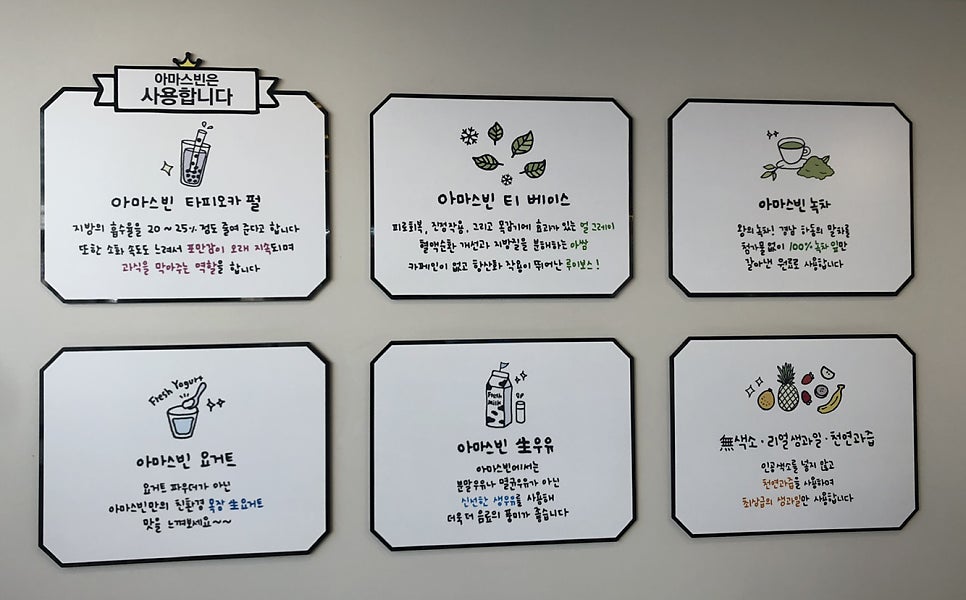 아마스빈은
사용합니다
아마스빈 타피오카 펄
지방의 흡수율을 20~25% 정도 줄여 준다고 합니다
또한 소화 속도도 느려서 포만감이 오래 지속되며
과식을 막아주는 역할을 합니다
아마스빈 티 베이스
피로회복, 진정작용, 그리고 목감기에 효과가 있는 얼 그레이
혈액순환 개선과 지방질을 분해하는 아쌈
카페인이 없고 항산화 작용이 뛰어난 루이보스!
아마스빈 녹차
왕의 녹차! 경남 하동의 말차를
첨가물 없이 100% 녹차 잎만
갈아낸 원료로 사용합니다
Fresh Yogurt
아마스빈 요거트
요거트 파우더가 아닌
아마스빈만의 친환경 목장 生요거트
맛을 느껴보세요~~
Fresh
Milk
아마스빈 生우유
아마스빈에서는
분말우유나 멸균우유가 아닌
신선한 생우유를 사용해
더욱 더 음료의 풍미가 좋습니다
無색소·리얼생과일·천연과즙
인공색소를 넣지 않고
천연과즙을 사용하며
최상급의 생과일만 사용합니다